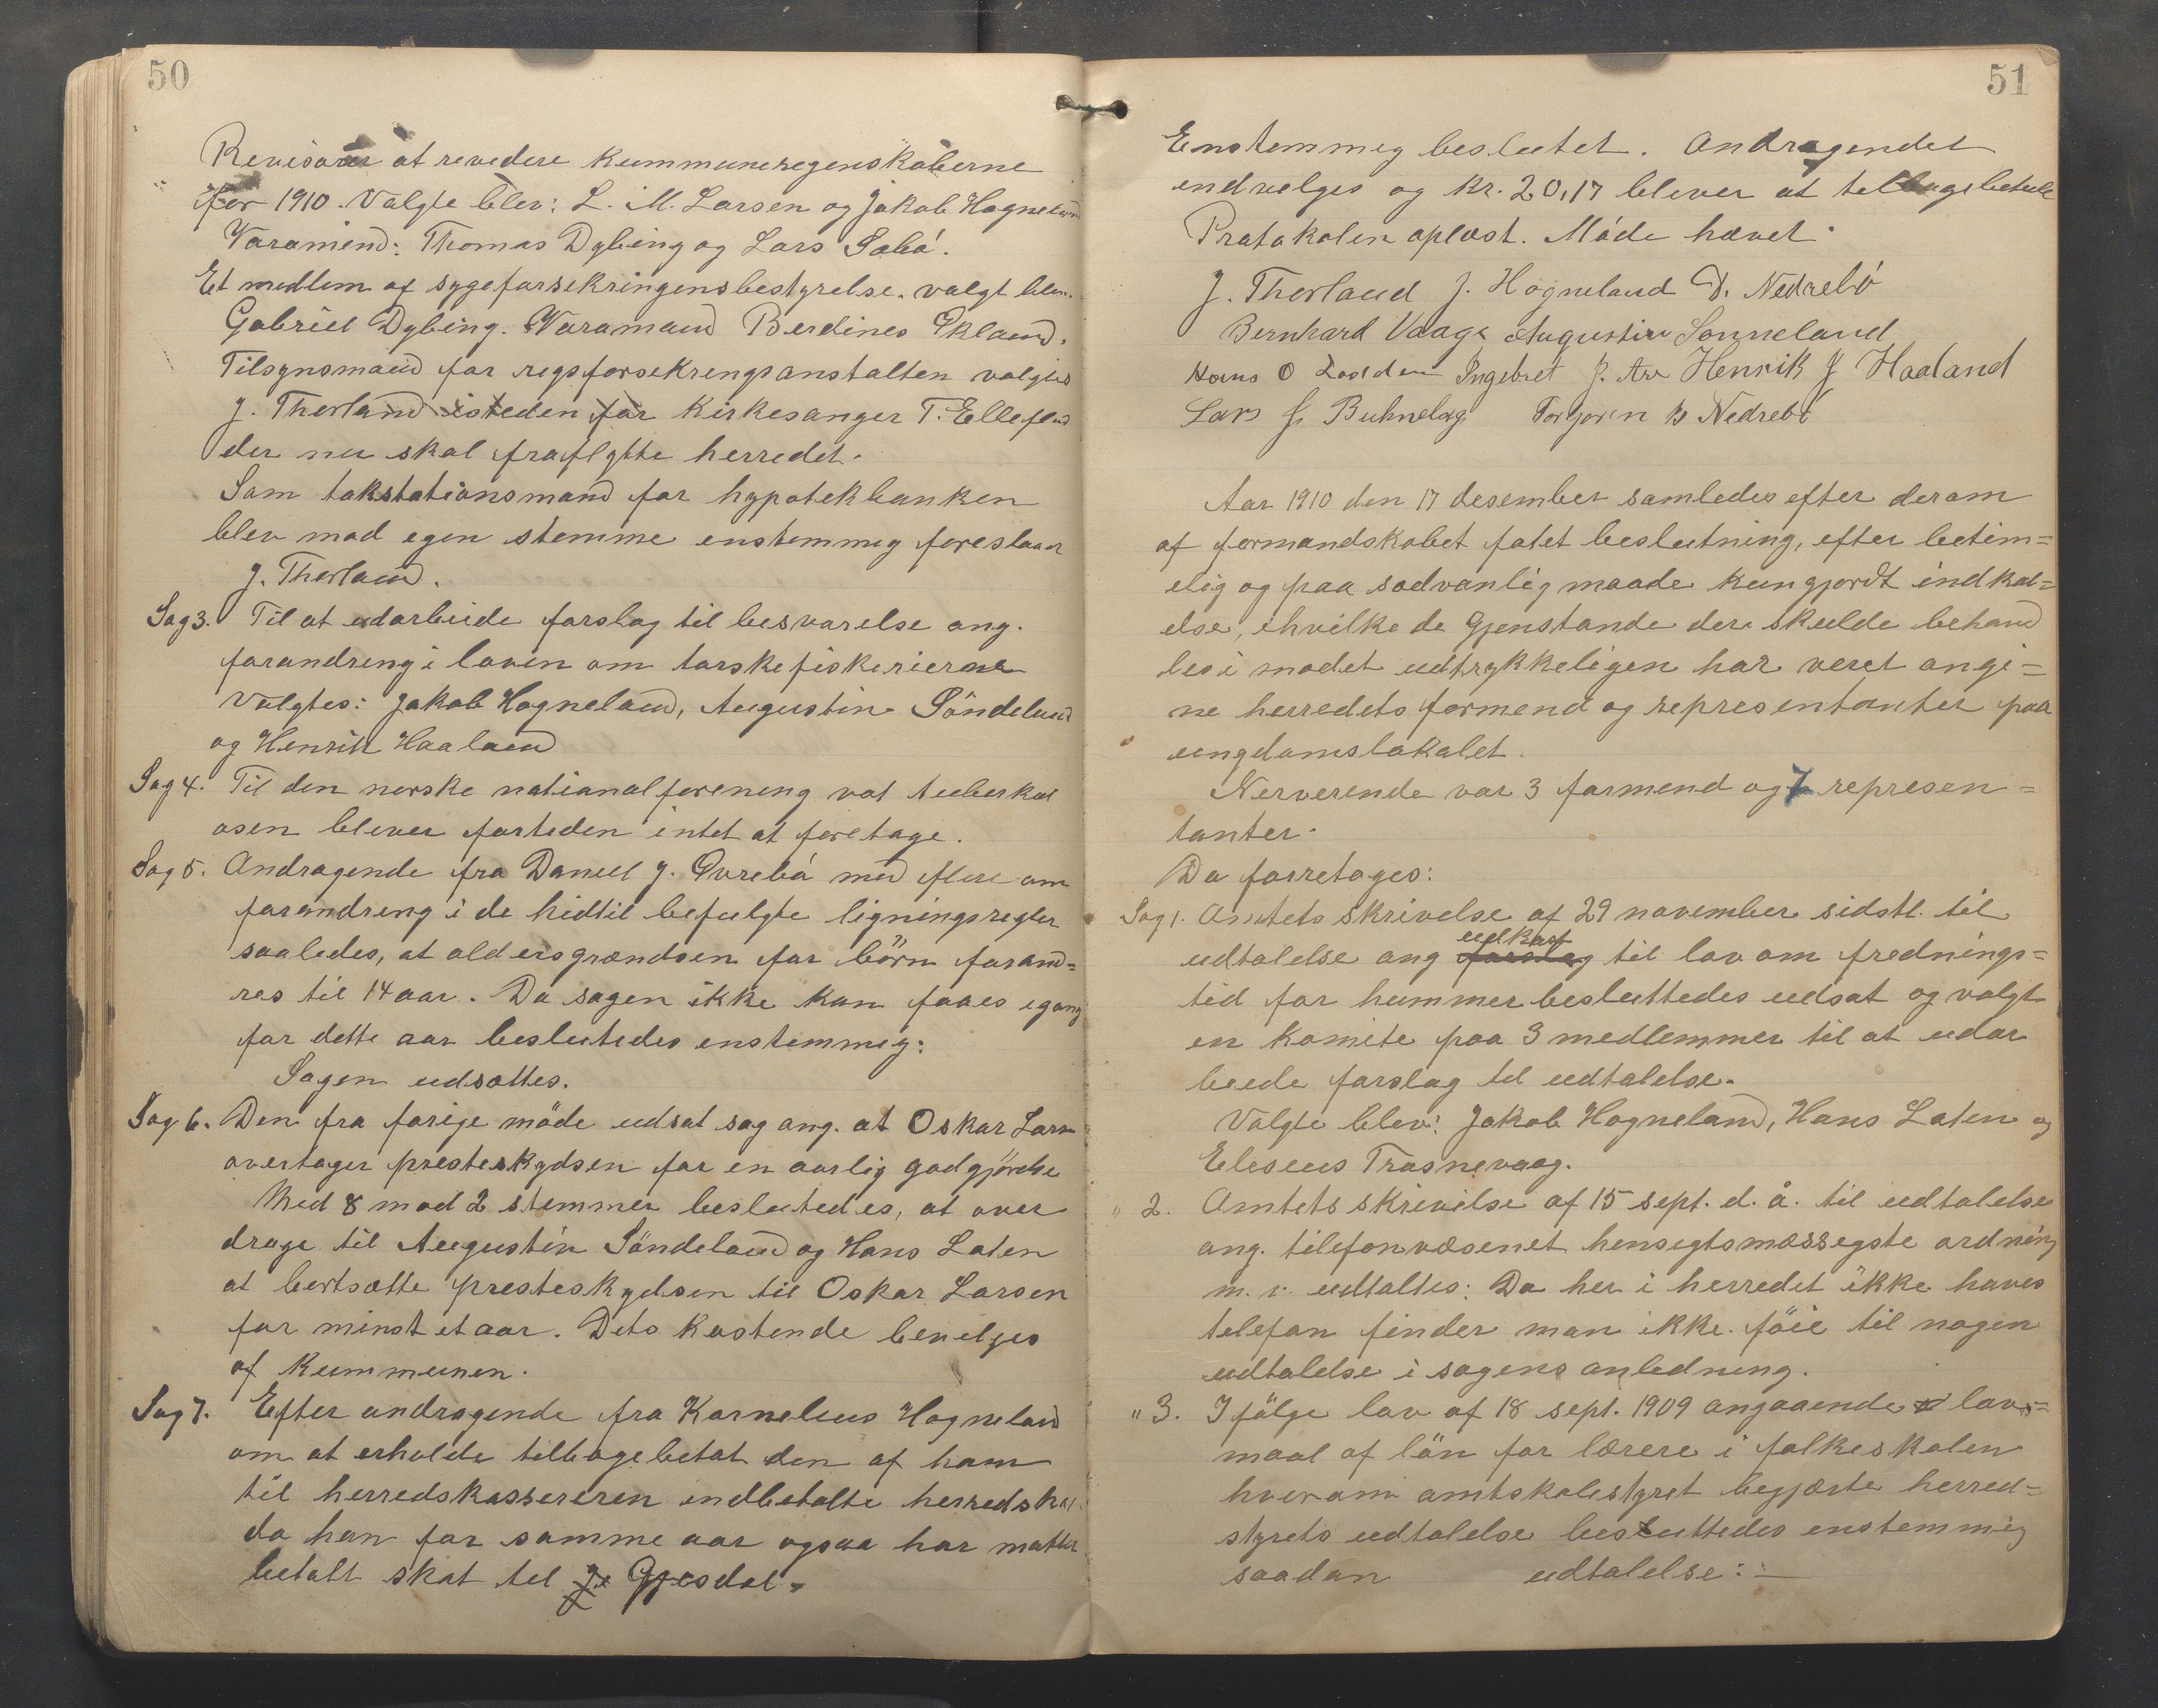 50
Revisorer at revedere kummuneregenskaberne
for 1910. Valgte blev: L. M. Larsen og Jakob Hogneland
Varamend: Thomas Dybing og Lars Sabö.
Et medlem af sygeforsekringensbestyrelse. valgt blev.
Gabriel Dybing. Varamand Berdines Ekland.
Tilsynsmand for regsforsekrengsanstalten valgtes
J. Therland isteden for Kirkesanger T. Ellefsen
der nu skal fraflytte herredet.
Som takstationsmand for hypotekbanken
blev mod egen stemme enstemmig foreslaat
J. Therland.
Sag 3. Til at udarbeide forslag til besvarelse ang.
forandreng i loven om torskefiskerierne
Valgtes: Jakob Hogneland, Augustin Söndeland
og Henrik Haaland
Sag 4. Til den norske nationalforening vot tuberkul
osen blever forteden intet at foretage.
Sag 5. Andragende fra Daneel J. Ovrebö med flere om
forandreng i de hidtil befulgte ligningsregler
saaledes, at aldersgrændsen for börn forand=
res til 14 aar. Da sagen ikke kan faaes igang
for dette aar beslutedes enstemmig:
Sagen udsættes.
Sag 6. Den fra forige möde udsat sag ang. at Oskar Larsen
overtager presteskydsen for en aarlig godgjörelse
Med 8 mod 2 stemmer beslutedes, at over
drage til Augustin Söndeland og Hans Loten
at bortsætte presteskydsen til Oskar Larsen
for minst et aar. Dets kostende bevelges
af kummunen.
Sag 7. Efter andragende fra Karnelius Hogneland
om at erholde telbagebetalt den af ham
til herredskassereren endbetalte herredskat
da han for samme aar ogsaa har mattet
betalt skat tel Gjesdal.
51
Enstemmeg beslutet. Andragendet
endvelges og kr. 20,17 blever at telbagebetale
Protokolen oplæst. Möde hævet.
J. Therland J. Hogneland D. Nedrebö
Bernhard Vaage Augustin Sonneland
Hans O Lodden Ingebret J. Are Henrik J Haaland
Lars J. Buhnelag Torger B Nedrebö
Aar 1910 den 17 desember samledes efter derom
af formandskabet fatet beslutning, efter betim=
elig og paa sædvanlig maade kungjordt indkal=
else, ihvilke de Gjenstande der skulde behand
les i modet udtrykkeligen har veret angi=
ne herredets formend og representanter paa
ungdomslokalet.
Nerverende var 3 formend og 7 represen=
tanter.
Da forretoges:
Sag 1. Amtets skrivelse af 29 november sidstl. til
udkast
udtalelse ang forslag til lov om frednings=
tid for hummer besluttedes udsat og valgt
en komite paa 3 medlemmer til at udar
beide forslag tel udtalelse.
Valgte blev: Jakob Hogneland, Hans Loten og
Eleseus Trosnevaag.
" 2. Amtets skrivelse af 15 sept. d. å. til udtalelse
ang. tilefonvæsenet hensegtsmæssegste ordning
m. v. udtaltes: Da her i herredet ikke haves
telefon finder man ikke föie til nogen
udtalelse i sagens anledneng.
" 3. I fölge lov af 18 sept. 1909 angaaende lavs=
maal af lön for lærere i folkeskolen
hverom amtskolestyret begjærte herred=
styrets udtalelse besluttedes enstemmig
saadan udtalelse: